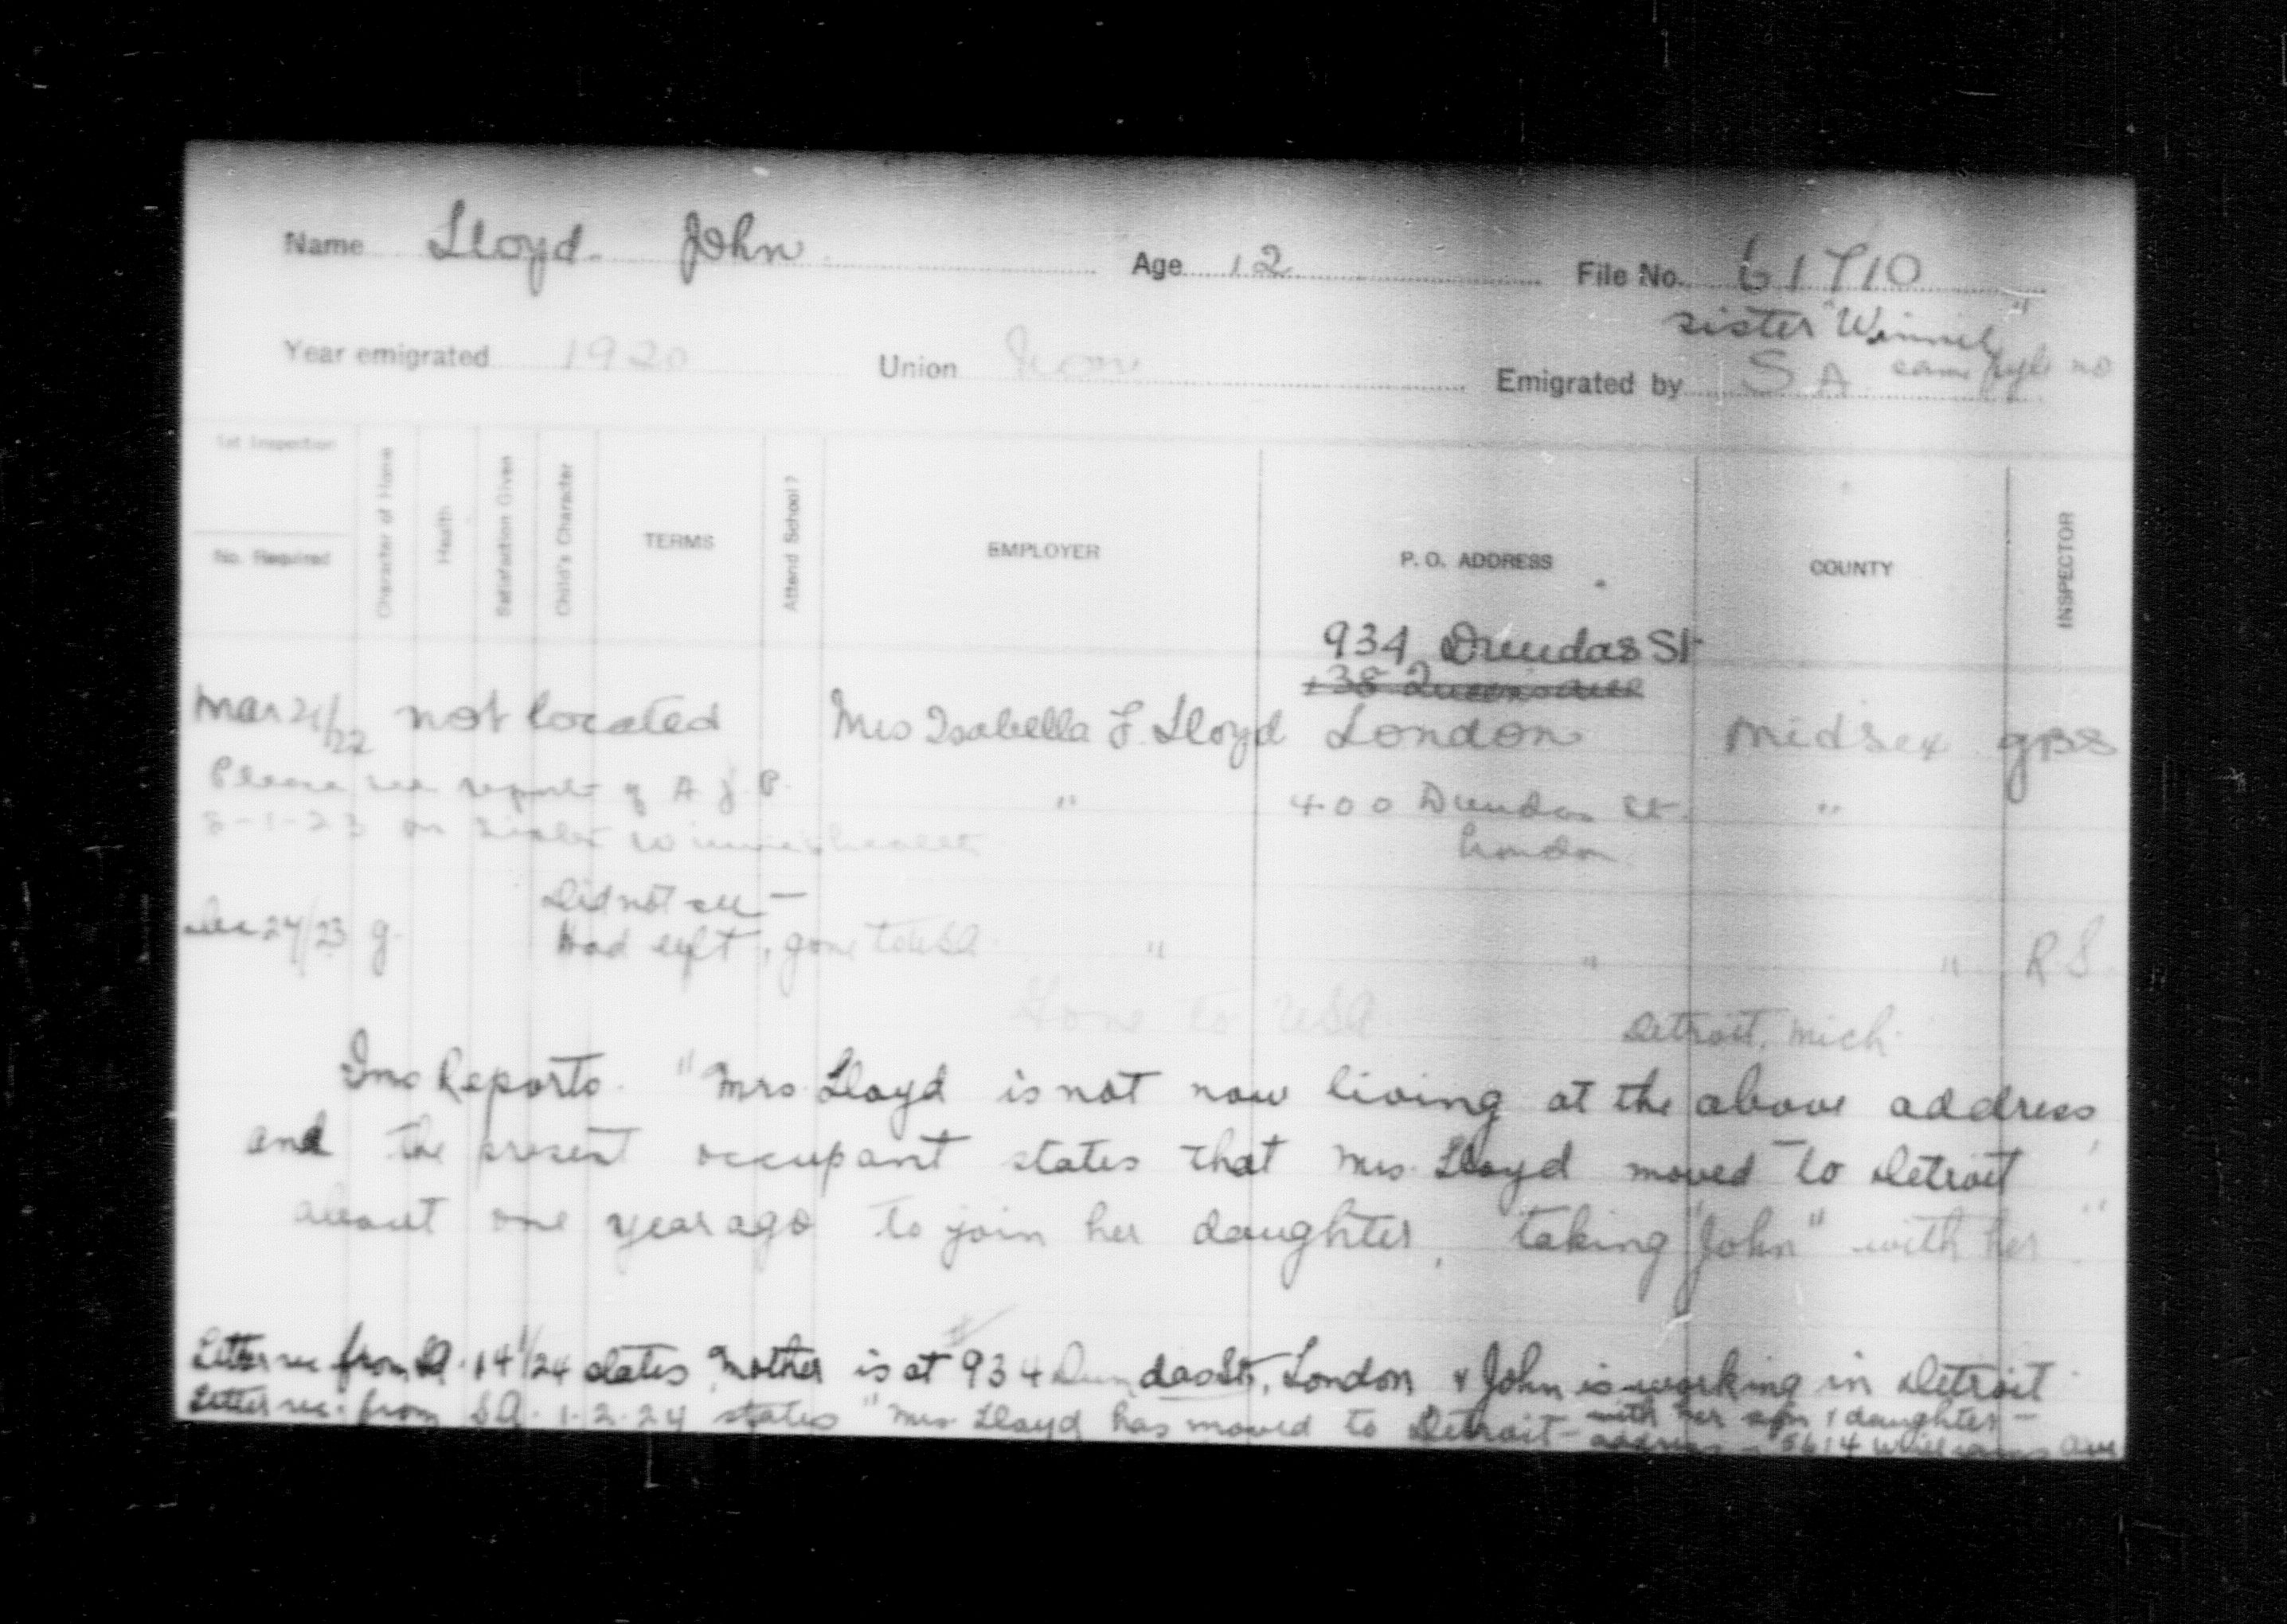 Name Lloyd John Age 12 File No. 61710
sister "Winnie"
same file no
Year emigrated 1920 Union Emigrated by S A
1st Inspection
No. Required
Character of Home
Health
Satisfaction Given
Child's Character
TERMS
Attend School?
EMPLOYER
P. O. ADDRESS
COUNTY
INSPECTOR
934 Dundas St
138 Queens ave
Mar 21/22 not located Mrs Isabella F. Lloyd London Midsex GBS
Please see report of A J. P. " 400 Dundas St. "
8-1-23 on sister London
Did not see —
Dec 24/23 g. Had left, gone to USA. " " " R S
Gone to USA Detroit, Mich.
Ins Reports. "Mrs Lloyd is not now living at the above address,
and the present occupant states that Mrs. Lloyd moved to Detroit
about one year ago to join her daughter, taking "John" with her."
Letter rec from SA. 14/1/24 states Mother is at 934 Dundas St, London & John is working in Detroit
Letter rec. from SA. 1-2-24 states "Mrs. Lloyd has moved to Detroit - with her son & daughter -
address - 5614 Williams Ave